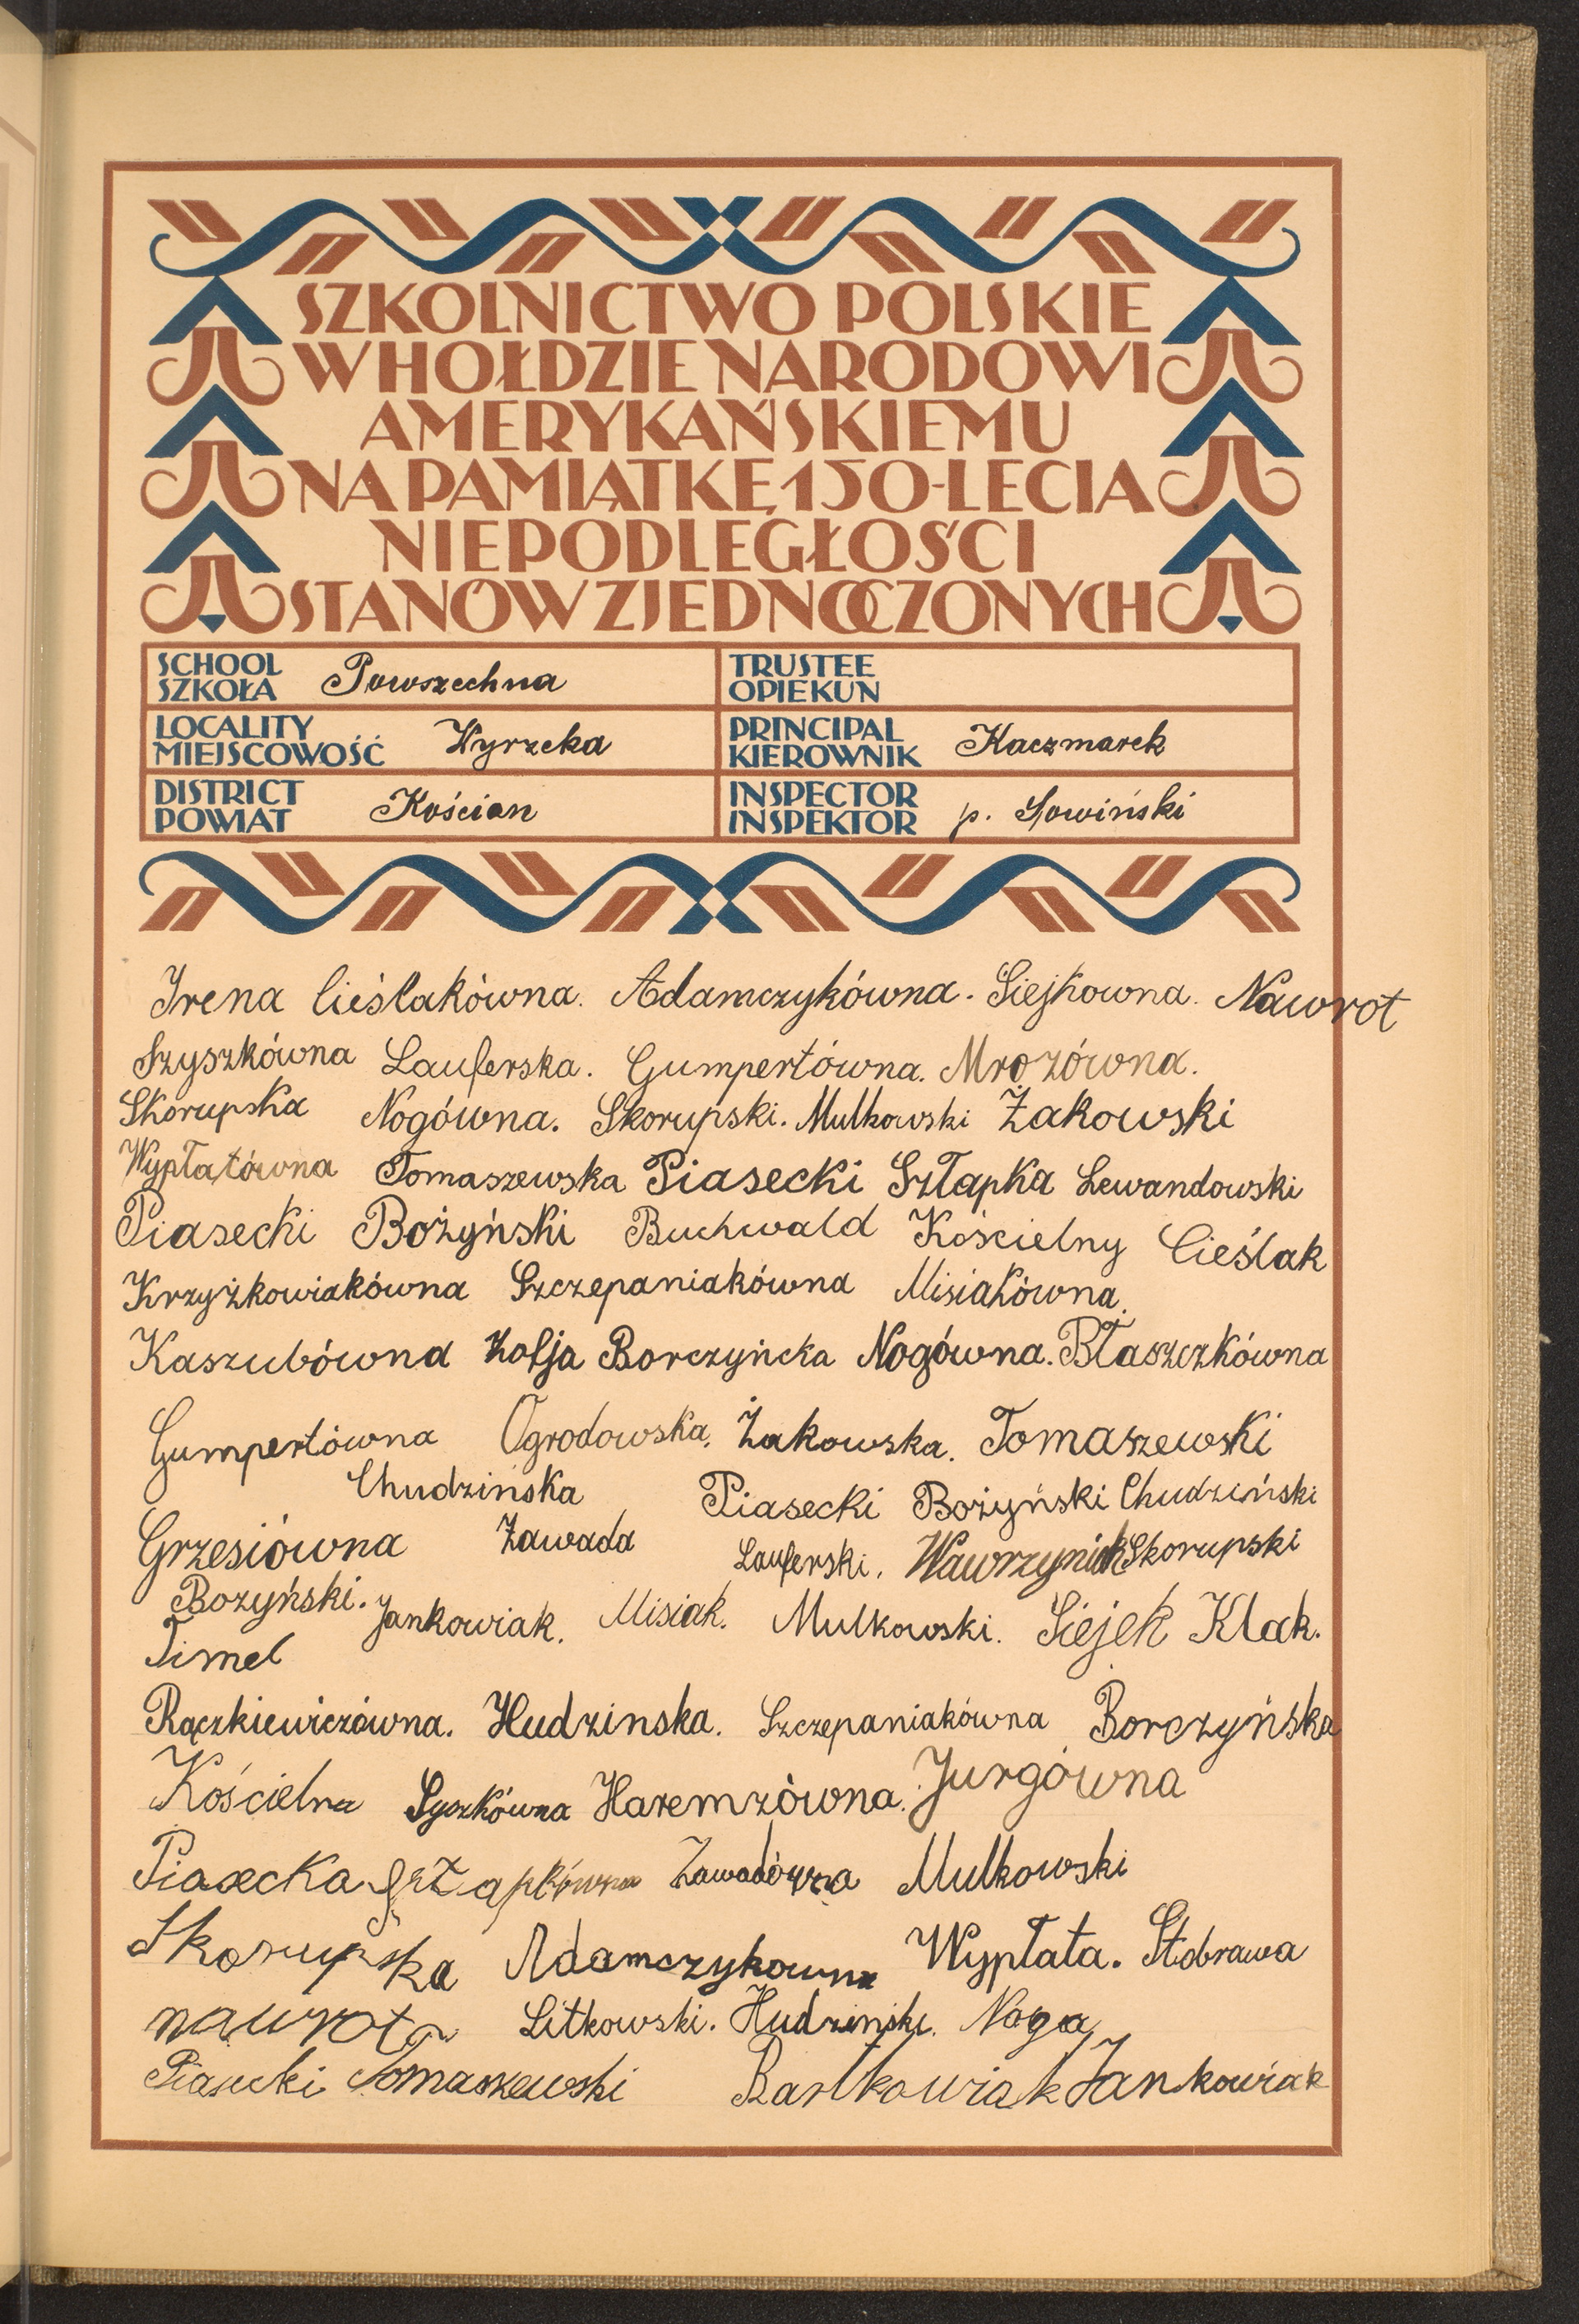 SZKOLNICTWO POLSKIE
W HOŁDZIE NARODOWI
AMERYKAŃSKIEMU
NA PAMIĄTKĘ 150-LECIA
NIEPODLEGŁOŚCI
STANÓW ZJEDNOCZONYCH
SCHOOL
SZKOŁA Powszechna
TRUSTEE
OPIEKUN
LOCALITY
MIEJSCOWOŚĆ Wyrzeka
PRINCIPAL
KIEROWNIK Kaczmarek
DISTRICT
POWIAT Kościan
INSPECTOR
INSPEKTOR p. Sowiński
Irena Cieślakówna. Adamczykówna. Siejkowna. Nawrot
Szyszkówna Lauferska. Gumpertówna. Mrozówna.
Skorupska Nogówna. Skorupski. Mulkowski Żakowski
Wypłatówna Tomaszewska Piasecki Szłapka Lewandowski
Piasecki Bożyński Buchwald Kościelny Cieślak
Krzyżkowiakówna Szczepaniakówna Misiakówna.
Kaszubówna Zofja Borczyńcka Nogówna. Błaszczkówna
Gumpertówna Ogrodowska. Żakowska. Tomaszewski
Chudzińska Piasecki Bożyński Chudziński
Grzesiówna Zawada Lauferski. Wawrzyniak Skorupski
Bozyński. Jankowiak. Misiak. Mulkowski. Siejek Klak.
Timel
Rączkiewiczówna. Hudzinska. Szczepaniakówna Borczyńska
Kościelna Syszkówna Haremzówna. Jurgówna
Piasecka Szłapkówna Zawadówna Mulkowski
Skorupska Adamczykowna Wypłata. Stobrawa
nawrota Litkowski. Hudzinski. Noga
Piasecki Tomaszewski Bartkowiak Jankowiak